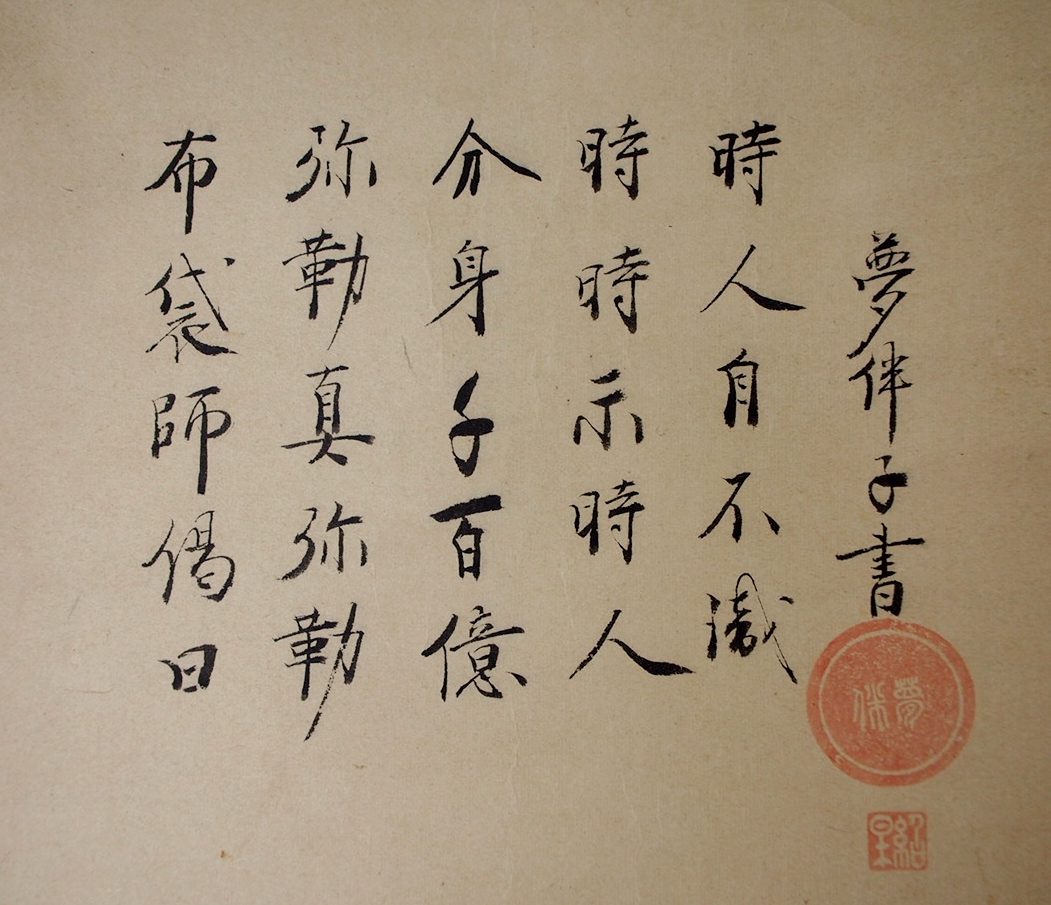 布袋師偈曰
弥勒真弥勒
分身千百億
時時示時人
時人自不識
夢伴子書
夢伴